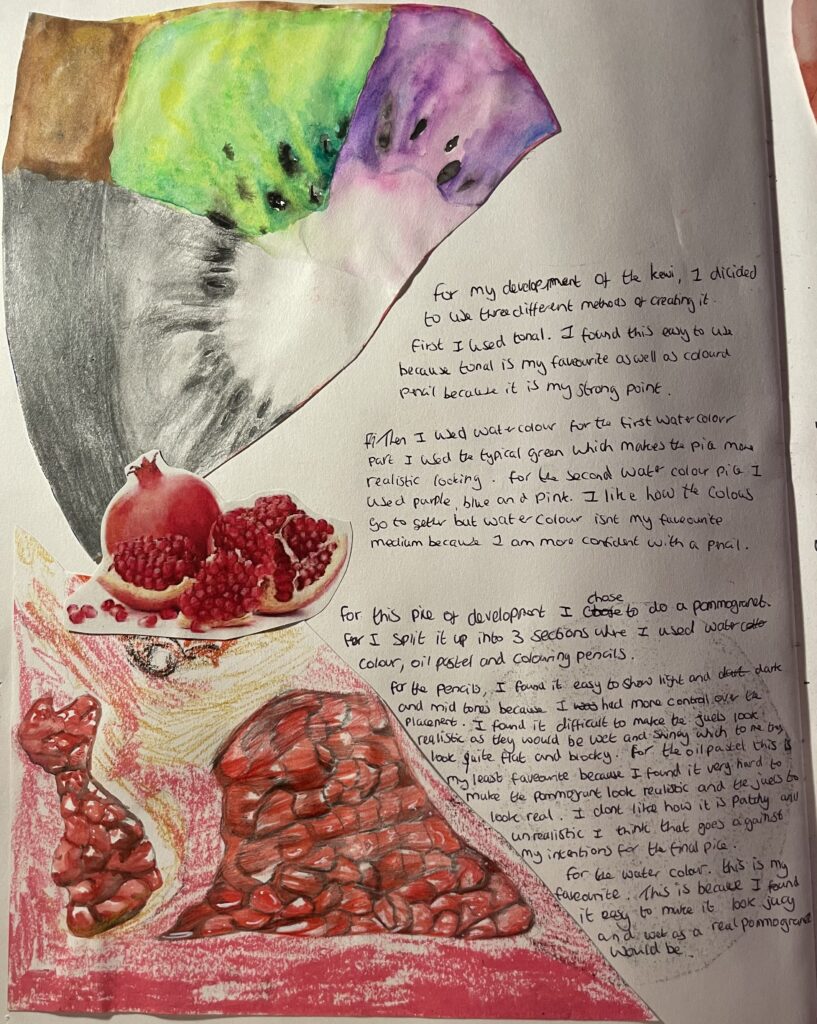 for my development of the kewi, I dicided
to use three different methods of creating it.
first I used tonal. I found this easy to use
because tonal is my favourite as well as colourd
pencil because it is my strong point.
Then I used watercolour for the first watercolour
part I used the typical green which makes the pice more
realistic looking. for the second water colour pice I
used purple, blue and pink. I like how the colous
go to getter but watercolour isnt my faveourite
medium because I am more confident with a pncil.
for this pice of development I chose to do a pommogranet.
I split it up into 3 sections where I used water
colour, oil pastel and colouring pencils.
for the pencils, I found it easy to show light and dark
and mid tones because I had more control over the
placement. I found it difficult to make the juels look
realistic as they would be wet and shiney which to me they
look quite flat and blocky. for the oil pastel this is
my least faveourite because I found it very hard to
make the pommogrunt look realistic and the juels to
look real. I dont like how it is patchy and
unrealistic I think that goes against
my intentions for the final pice.
for the water colour. this is my
faveourite. This is becaue I found
it easy to make it look jucy
and wet as a real pommogranet
would be.